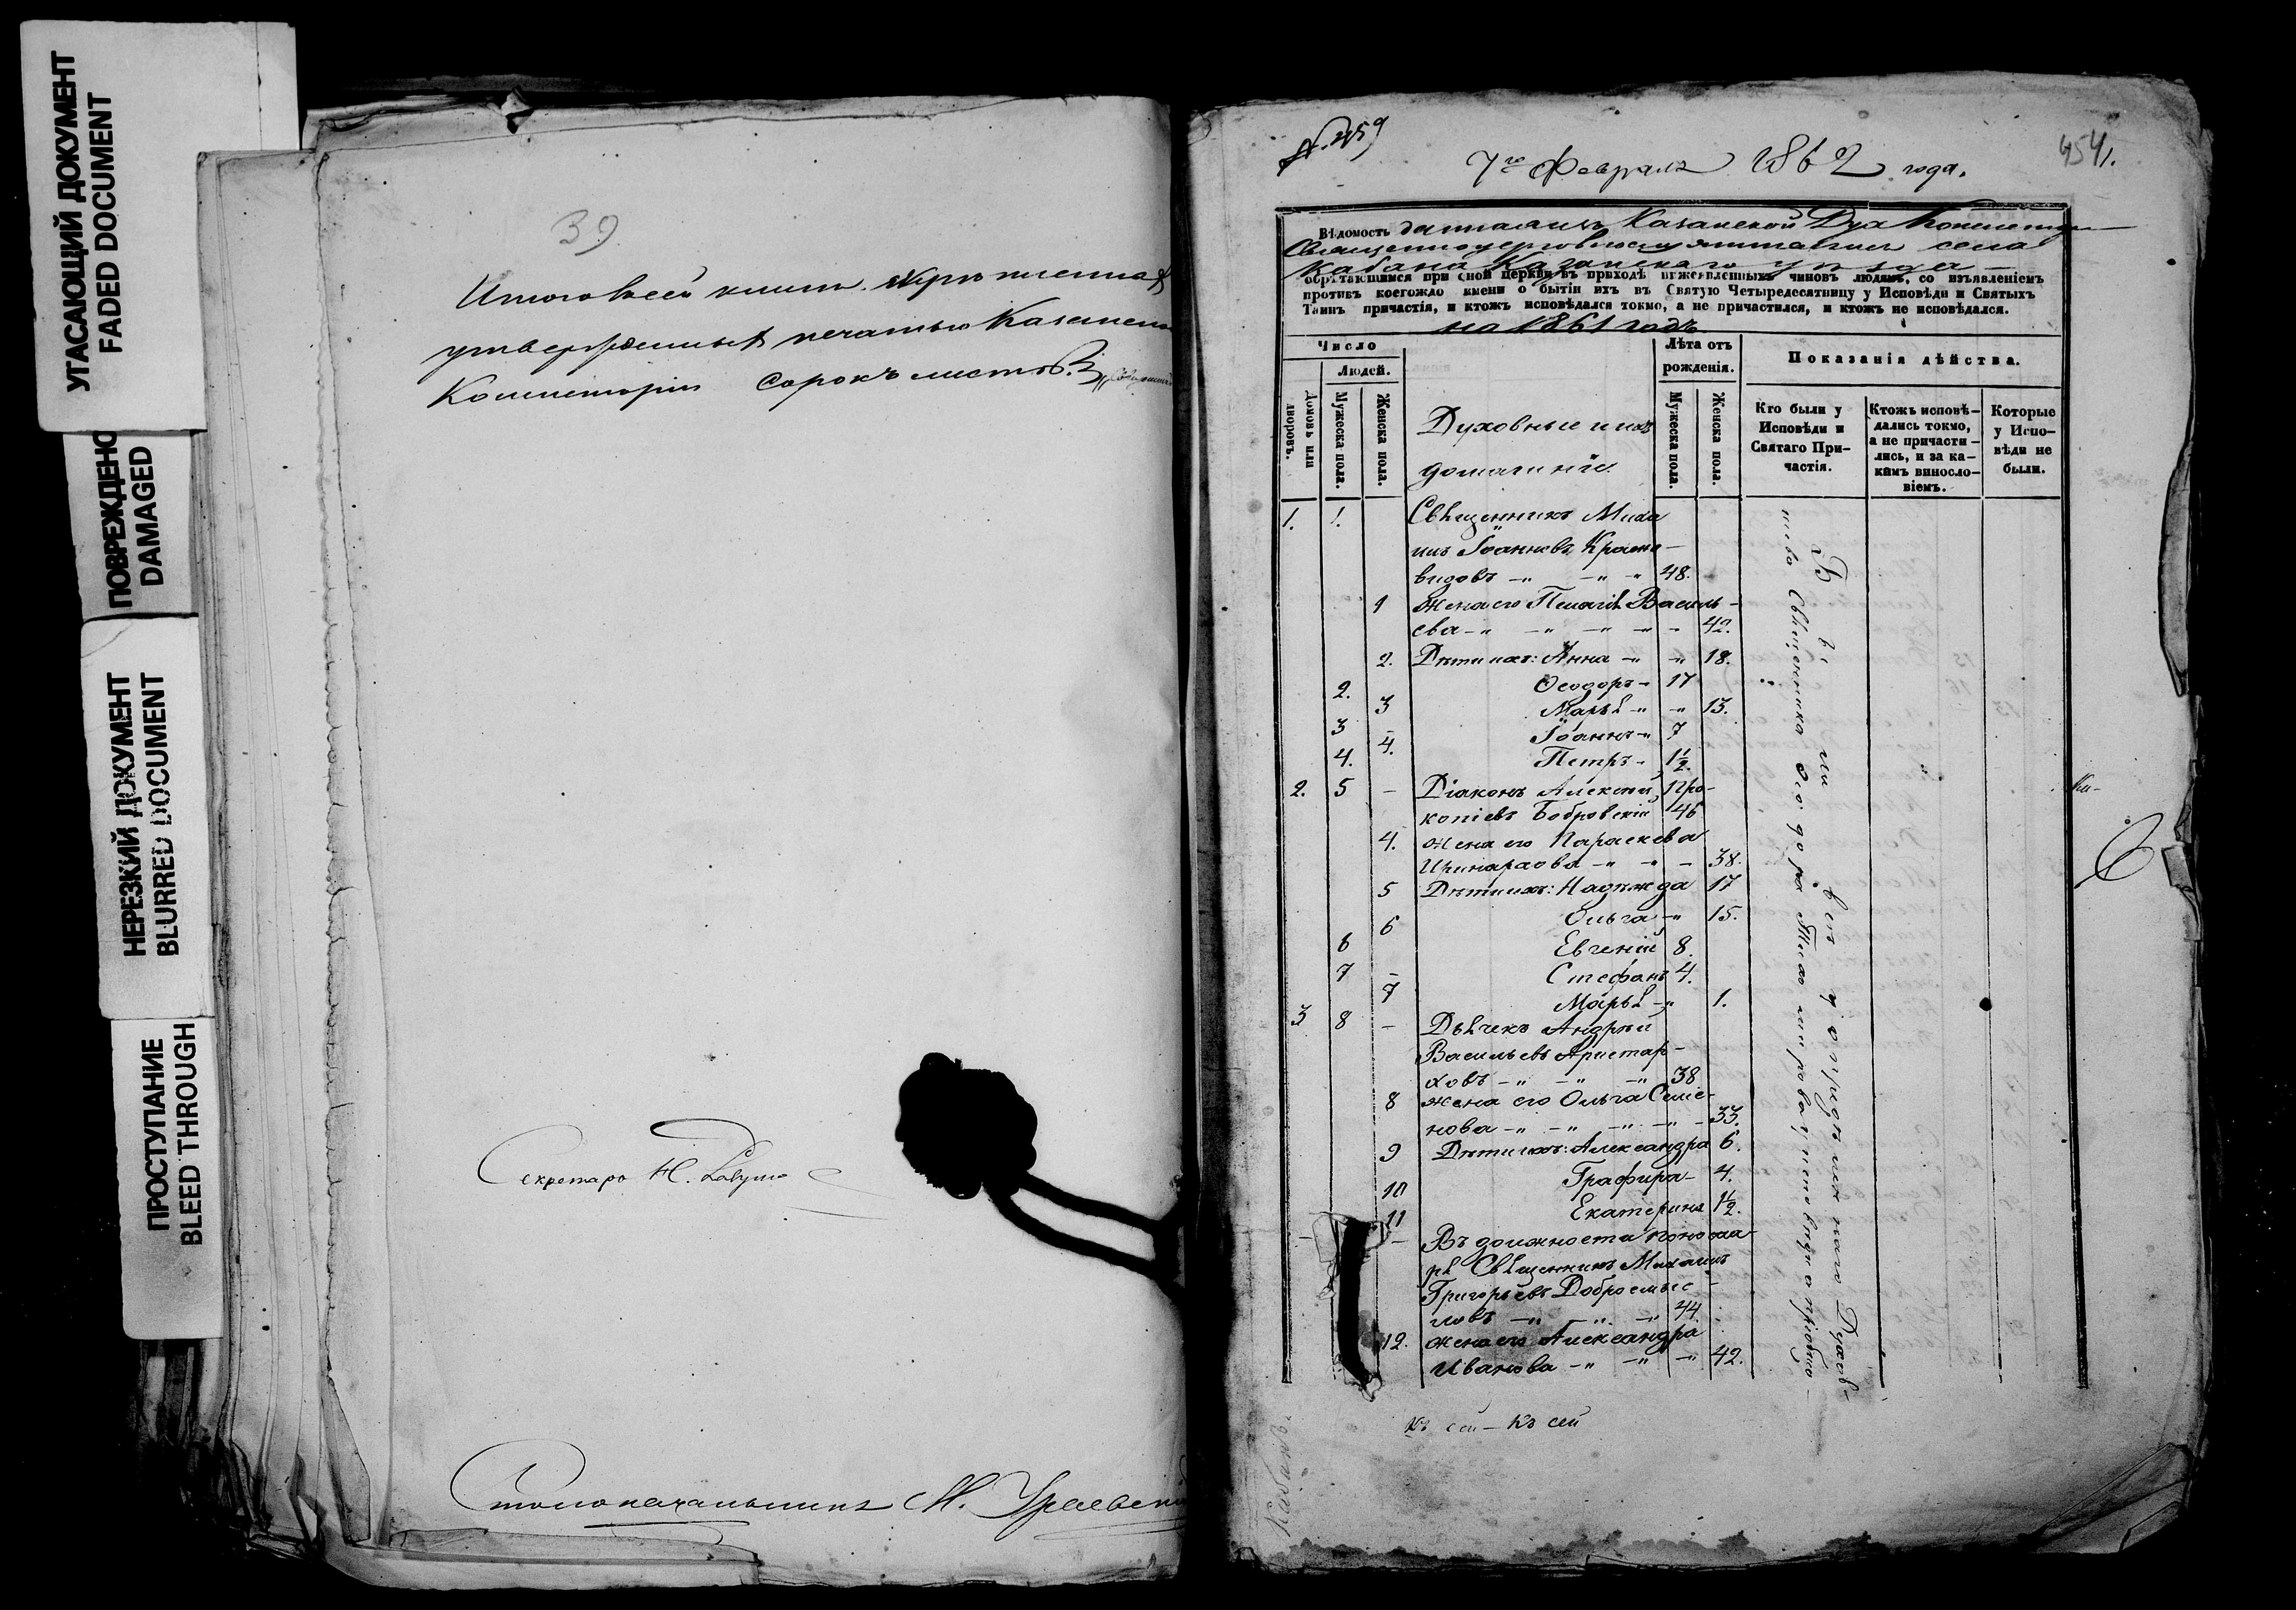 УГАСАЮЩИЙ ДОКУМЕНТ
FADED DOCUMENT
ПОВРЕЖДЕНО
DAMAGED
НЕРЕЗКИЙ ДОКУМЕНТ
BLURRED DOCUMENT
ПРОСТУПАНИЕ
BLEED THROUGH
39
Итого всей книги скрѣпленная
утвержденныя печатью Казанско
Консисторіи Сорокъ листовъ
Секретарь Н.
Столоначальникъ М.
№ 459
454.
7го Февраля 1862 года.
Вѣдомость Казанской Дух
села
Кабана Казанскаго уѣзда
обрѣтающимся при оной церкви въ приходѣ нижеявленныхъ чиновъ людямъ, со изъявленіемъ
противъ коегождо имени о бытіи ихъ въ Святую Четыредесятницу у Исповѣди и Святыхъ
Таинъ причастія, и ктожъ исповѣдался токмо, а не причастился, и ктожъ не исповѣдался.
на 1861 годъ
Число
Людей.
Домовъ или дворовъ.
Мужеска пола.
Женска пола.
Духовные и ихъ
домашніе.
Лѣта отъ
рожденія.
Мужеска пола.
Женска пола.
Показанія дѣйства.
Кто были у
Исповѣди и
Святаго При-
частія.
Ктожъ исповѣ-
дались токмо,
а не причасти-
лись, и за ка-
кимъ виносло-
віемъ.
Которые
у Испо-
вѣди не
были.
1. 1. Священникъ Миха
илъ Іоанновъ Красно-
видовъ 48.
1 жена его Пелагія Василь-
ева 42.
2. Дѣти ихъ: Анна 18.
2. Ѳеодоръ 17
3 Марья 13.
3 Іоаннъ 7
4.
4. Петръ 1½.
2. 5 Діаконъ Алексій Про-
копіевъ Бобровскій 46
4. жена его Параскева
Иринархова 38.
5 Дѣти ихъ: Надежда 17
6 Ольга 15.
6 Евгеній 8.
7 Стефанъ 4.
7 Марья 1.
3 8 Дьячекъ Андрей
Васильевъ Аристар-
ховъ 38
8 жена его Ольга Семе-
нова 33.
9 Дѣти ихъ: Александра 6.
10 Графира 4.
11 Екатерина 1½.
Въ должности понома-
ря Священникъ Михаилъ
Григорьевъ Добросмыс-
ловъ 44.
12. жена его Александра
Иванова 42.
Были
Священника Ѳеодора
Къ сей — Къ сей
Кабанъ.